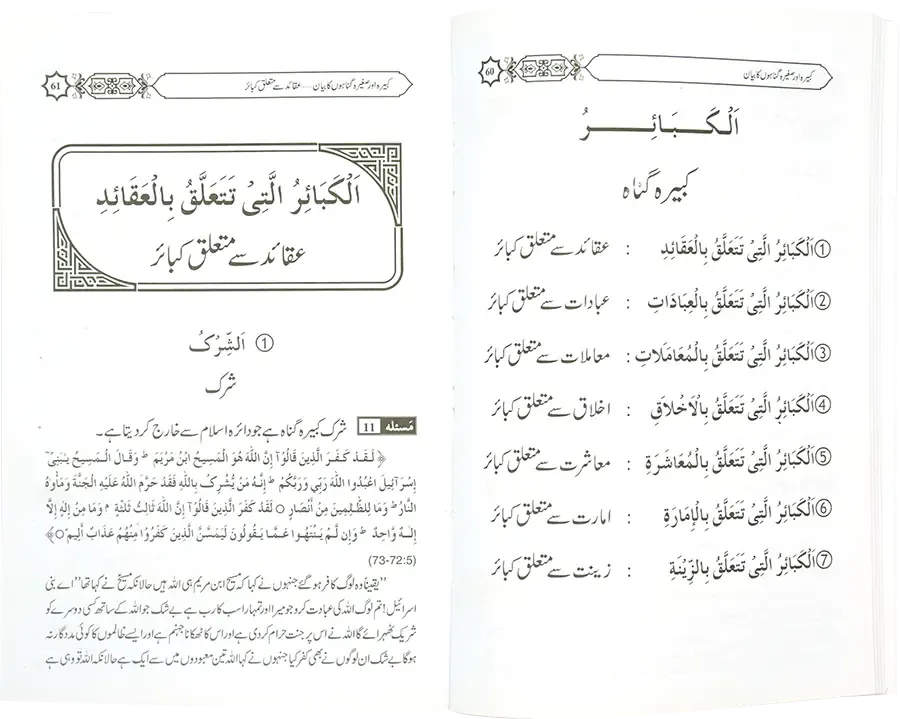 60
کبیرہ اور صغیرہ گناہوں کا بیان
اَلْکَبَائِرُ
کبیرہ گناہ
① اَلْکَبَائِرُ الَّتِیْ تَتَعَلَّقُ بِالْعَقَائِدِ : عقائد سے متعلق کبائر
② اَلْکَبَائِرُ الَّتِیْ تَتَعَلَّقُ بِالْعِبَادَاتِ : عبادات سے متعلق کبائر
③ اَلْکَبَائِرُ الَّتِیْ تَتَعَلَّقُ بِالْمُعَامَلَاتِ : معاملات سے متعلق کبائر
④ اَلْکَبَائِرُ الَّتِیْ تَتَعَلَّقُ بِالْاَخْلَاقِ : اخلاق سے متعلق کبائر
⑤ اَلْکَبَائِرُ الَّتِیْ تَتَعَلَّقُ بِالْمُعَاشَرَةِ : معاشرت سے متعلق کبائر
⑥ اَلْکَبَائِرُ الَّتِیْ تَتَعَلَّقُ بِالْاِمَارَةِ : امارت سے متعلق کبائر
⑦ اَلْکَبَائِرُ الَّتِیْ تَتَعَلَّقُ بِالزِّیْنَةِ : زینت سے متعلق کبائر
61
کبیرہ اور صغیرہ گناہوں کا بیان.....عقائد سے متعلق کبائر
اَلْکَبَائِرُ الَّتِیْ تَتَعَلَّقُ بِالْعَقَائِدِ
عقائد سے متعلق کبائر
① اَلشِّرْکُ
شرک
مَسئله 11 شرک کبیرہ گناہ ہے جو دائرہ اسلام سے خارج کر دیتا ہے۔
﴿ لَقَدْ کَفَرَ الَّذِیْنَ قَالُوْآ اِنَّ اللّٰهَ هُوَ الْمَسِیْحُ ابْنُ مَرْیَمَ ط وَقَالَ الْمَسِیْحُ یٰبَنِیْٓ
اِسْرَآئِیْلَ اعْبُدُوا اللّٰهَ رَبِّیْ وَرَبَّکُمْ ط اِنَّهٗ مَنْ یُّشْرِکْ بِاللّٰهِ فَقَدْ حَرَّمَ اللّٰهُ عَلَیْهِ الْجَنَّةَ وَمَاْوٰهُ
النَّارُ ط وَمَا لِلظّٰلِمِیْنَ مِنْ اَنْصَارٍ ○ لَقَدْ کَفَرَ الَّذِیْنَ قَالُوْآ اِنَّ اللّٰهَ ثَالِثُ ثَلٰثَةٍ م وَمَا مِنْ اِلٰهٍ اِلَّآ
اِلٰهٌ وَّاحِدٌ ط وَاِنْ لَّمْ یَنْتَهُوْا عَمَّا یَقُوْلُوْنَ لَیَمَسَّنَّ الَّذِیْنَ کَفَرُوْا مِنْهُمْ عَذَابٌ اَلِیْمٌ ○﴾
(73-72:5)
”یقیناً وہ لوگ کافر ہو گئے جنہوں نے کہا کہ مسیح ابن مریم ہی اللہ ہیں حالانکہ مسیح نے کہا تھا ”اے بنی
اسرائیل! تم لوگ اللہ کی عبادت کرو جو میرا اور تمہارا سب کا رب ہے بے شک جو اللہ کے ساتھ کسی دوسرے کو
شریک ٹھہرائے گا اللہ نے اس پر جنت حرام کر دی ہے اور اس کا ٹھکانا جہنم ہے اور ایسے ظالموں کا کوئی مددگار نہ
ہو گا بے شک ان لوگوں نے بھی کفر کیا جنہوں نے کہا اللہ تین معبودوں میں سے ایک ہے حالانکہ اللہ تو وہی ہے